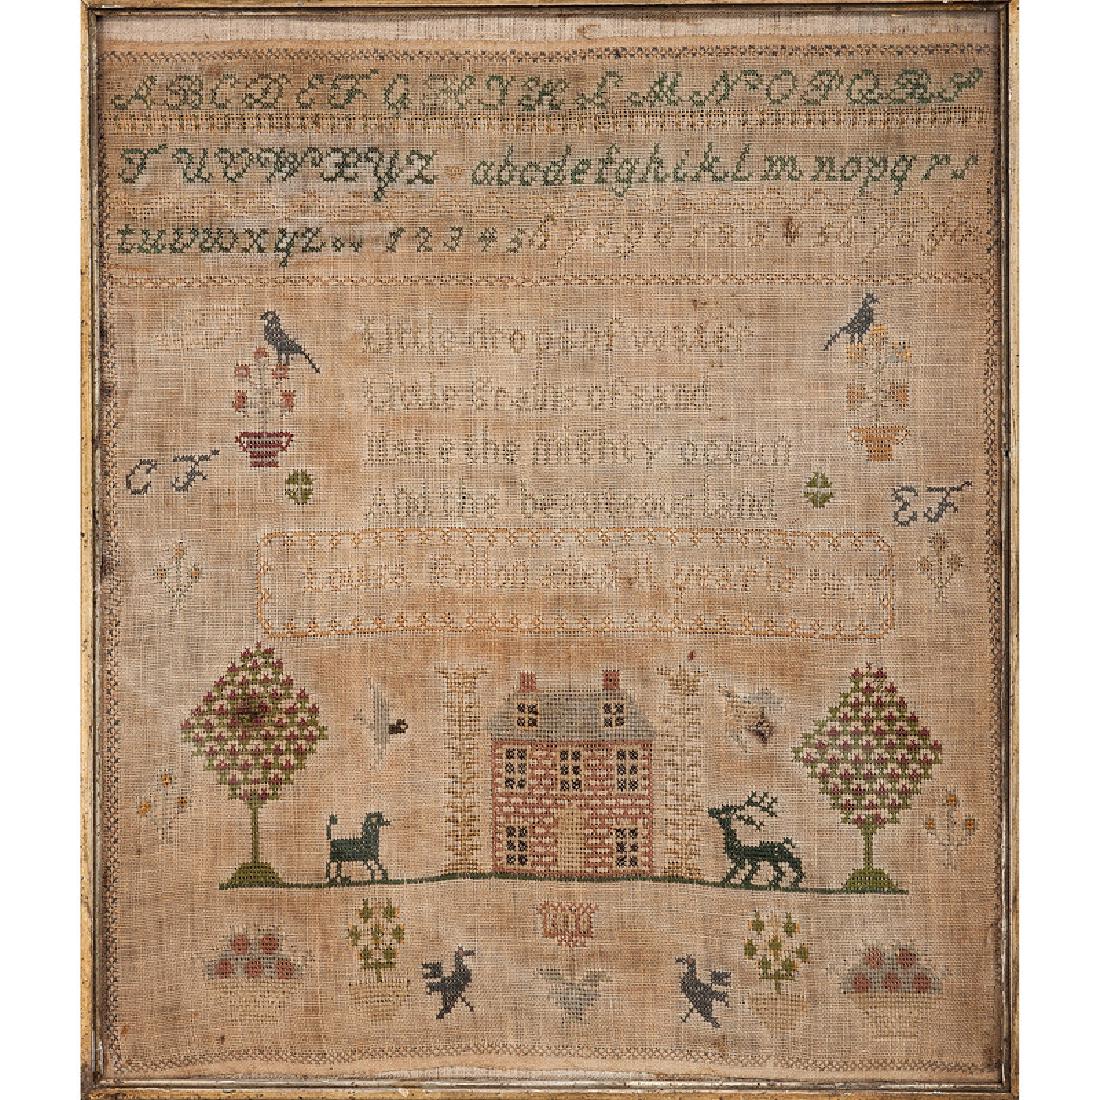 A B C D E F G H I K L M N O P Q R S
T U V W X Y Z a b c d e f g h i k l m n o p q r s
t u v w x y z 1 2 3 4 5
Little drops of water
Little grains of sand
Make the mighty ocean
And the beauteous land
C F
E F
aged 11 years